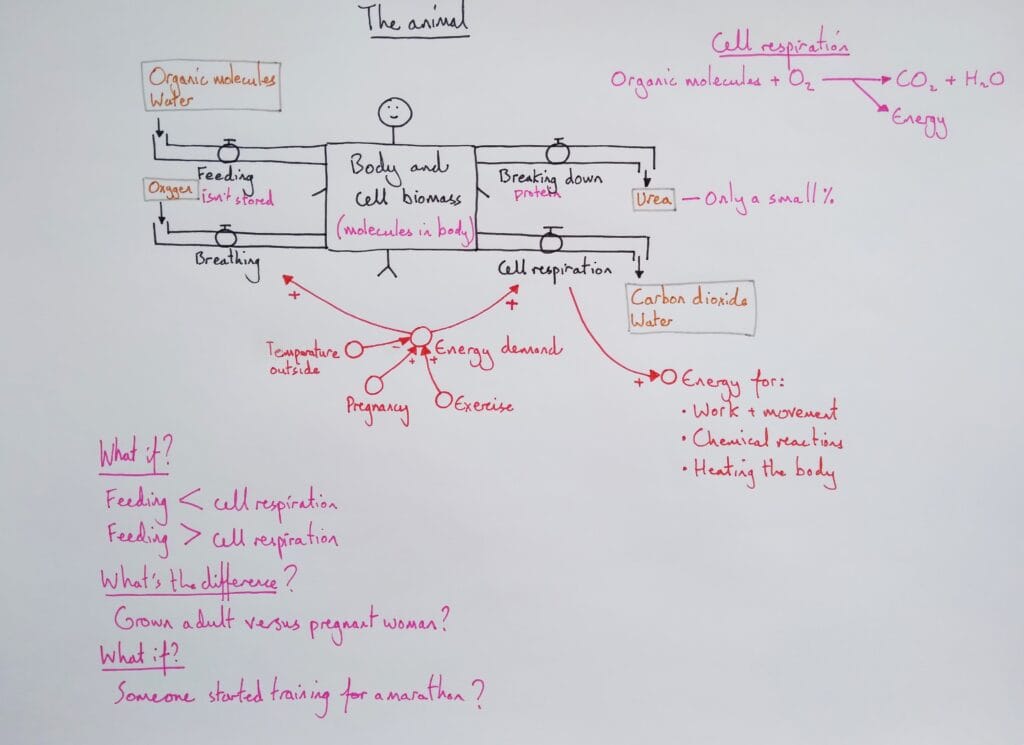 The animal
Cell respiration
Organic molecules + O₂ → CO₂ + H₂O
Energy
Organic molecules
Water
Feeding
Oxygen
isn't stored
Breathing
Body and
cell biomass
(molecules in body)
Breaking down
protein
Urea – Only a small %
Cell respiration
Carbon dioxide
Water
+
+
Energy demand
Temperature
outside
-
+
+
Pregnancy
Exercise
+
Energy for:
• Work + movement
• Chemical reactions
• Heating the body
What if?
Feeding < cell respiration
Feeding > cell respiration
What's the difference?
Grown adult versus pregnant woman?
What if?
Someone started training for a marathon?